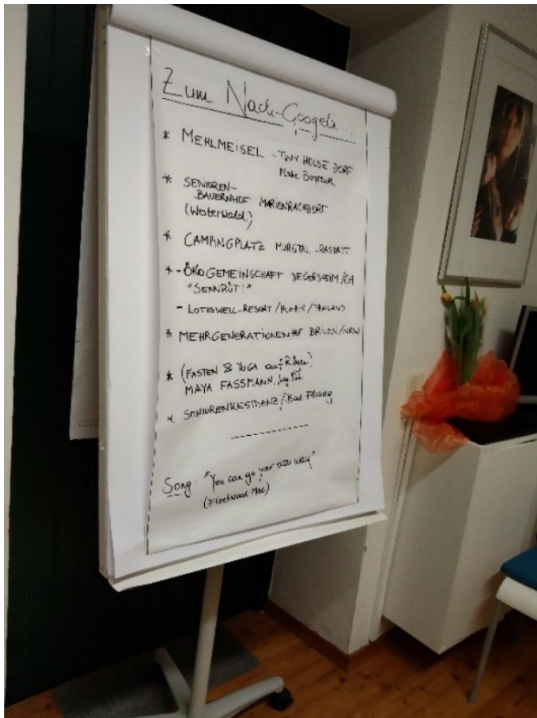 Zum Nach-Googeln...
* MEHLMEISEL - TINY HOUSE DORF
Nähe Bayreuth
* SENIOREN-
BAUERNHOF MARIENRACHDORF
(Westerwald)
* CAMPINGPLATZ MURGTAL - RASTATT
* - ÖKOGEMEINSCHAFT DEGERSHEIM/CH
"SENNRÜTI"
- LOTUSWELL-RESORT / HUAHIN / THAILAND
* MEHRGENERATIONENHOF /NRW
* (FASTEN & YOGA auf Rügen)
MAYA FASSMANN,
* SENIORENRESIDENZ / Bad
Song: "You can go your own way"
(Fleetwood Mac)